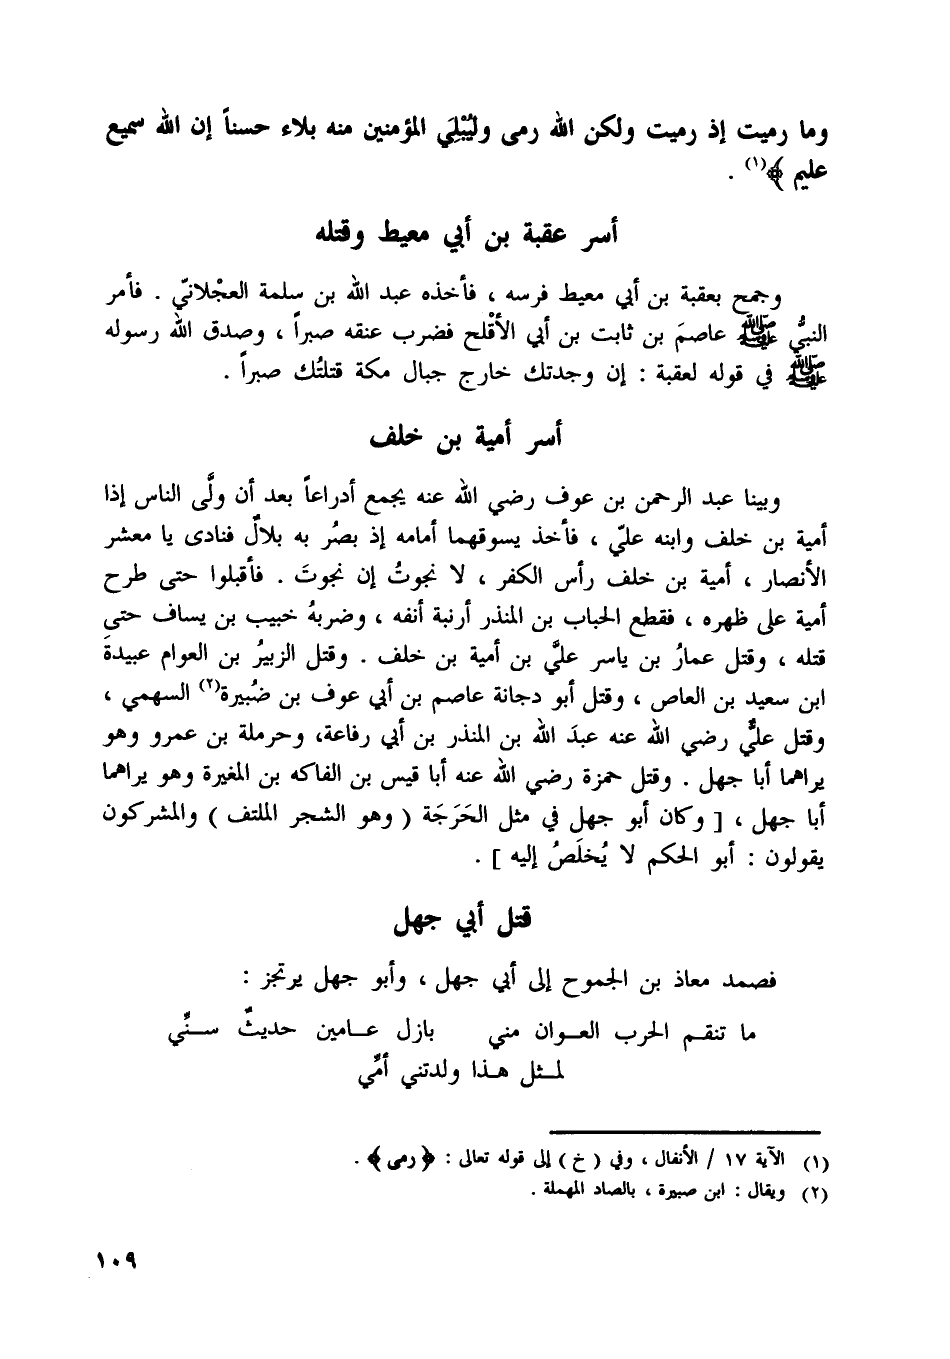 وما رميت إذ رميت ولكن الله رمى وليُبْلِيَ المؤمنين منه بلاء حسناً إن الله سميع
عليم ﴾(١) .
أسر عقبة بن أبي معيط وقتله
وجمح بعقبة بن أبي معيط فرسه ، فأخذه عبد الله بن سلمة العجْلانيّ . فأمر
النبيُّ ﷺ عاصمَ بن ثابت بن أبي الأقْلح فضرب عنقه صبراً ، وصدق الله رسوله
ﷺ في قوله لعقبة : إن وجدتك خارج جبال مكة قتلتُك صبراً .
أسر أمية بن خلف
وبينا عبد الرحمن بن عوف رضي الله عنه يجمع أدراعاً بعد أن ولَّى الناس إذا
أمية بن خلف وابنه عليّ ، فأخذ يسوقهما أمامه إذ بصُر به بلالٌ فنادى يا معشر
الأنصار ، أمية بن خلف رأس الكفر ، لا نجوتُ إن نجوتَ . فأقبلوا حتى طرح
أمية على ظهره ، فقطع الحباب بن المنذر أرنبة أنفه ، وضربهُ خبيب بن يساف حتى
قتله ، وقتل عمارُ بن ياسر عليَّ بن أمية بن خلف . وقتل الزبيرُ بن العوام عبيدةَ
ابن سعيد بن العاص ، وقتل أبو دجانة عاصم بن أبي عوف بن ضُبيرة(٢) السهمي ،
وقتل عليٌّ رضي الله عنه عبدَ الله بن المنذر بن أبي رفاعة، وحرملة بن عمرو وهو
يراهما أبا جهل . وقتل حمزة رضي الله عنه أبا قيس بن الفاكه بن المغيرة وهو يراهما
أبا جهل ، [ وكان أبو جهل في مثل الحَرَجَة ( وهو الشجر الملتف ) والمشركون
يقولون : أبو الحكم لا يُخلَصُ إليه ] .
قتل أبي جهل
فصمد معاذ بن الجموح إلى أبي جهل ، وأبو جهل يرتجز :
ما تنقـم الحرب العـوان مني بازل عـامين حديثٌ سـنِّي
لمـثل هـذا ولدتني أمِّي
(١) الآية ١٧ / الأنفال ، وفي ( خ ) إلى قوله تعالى : ﴿ رمى ﴾ .
(٢) ويقال : ابن صبيرة ، بالصاد المهملة .
١٠٩